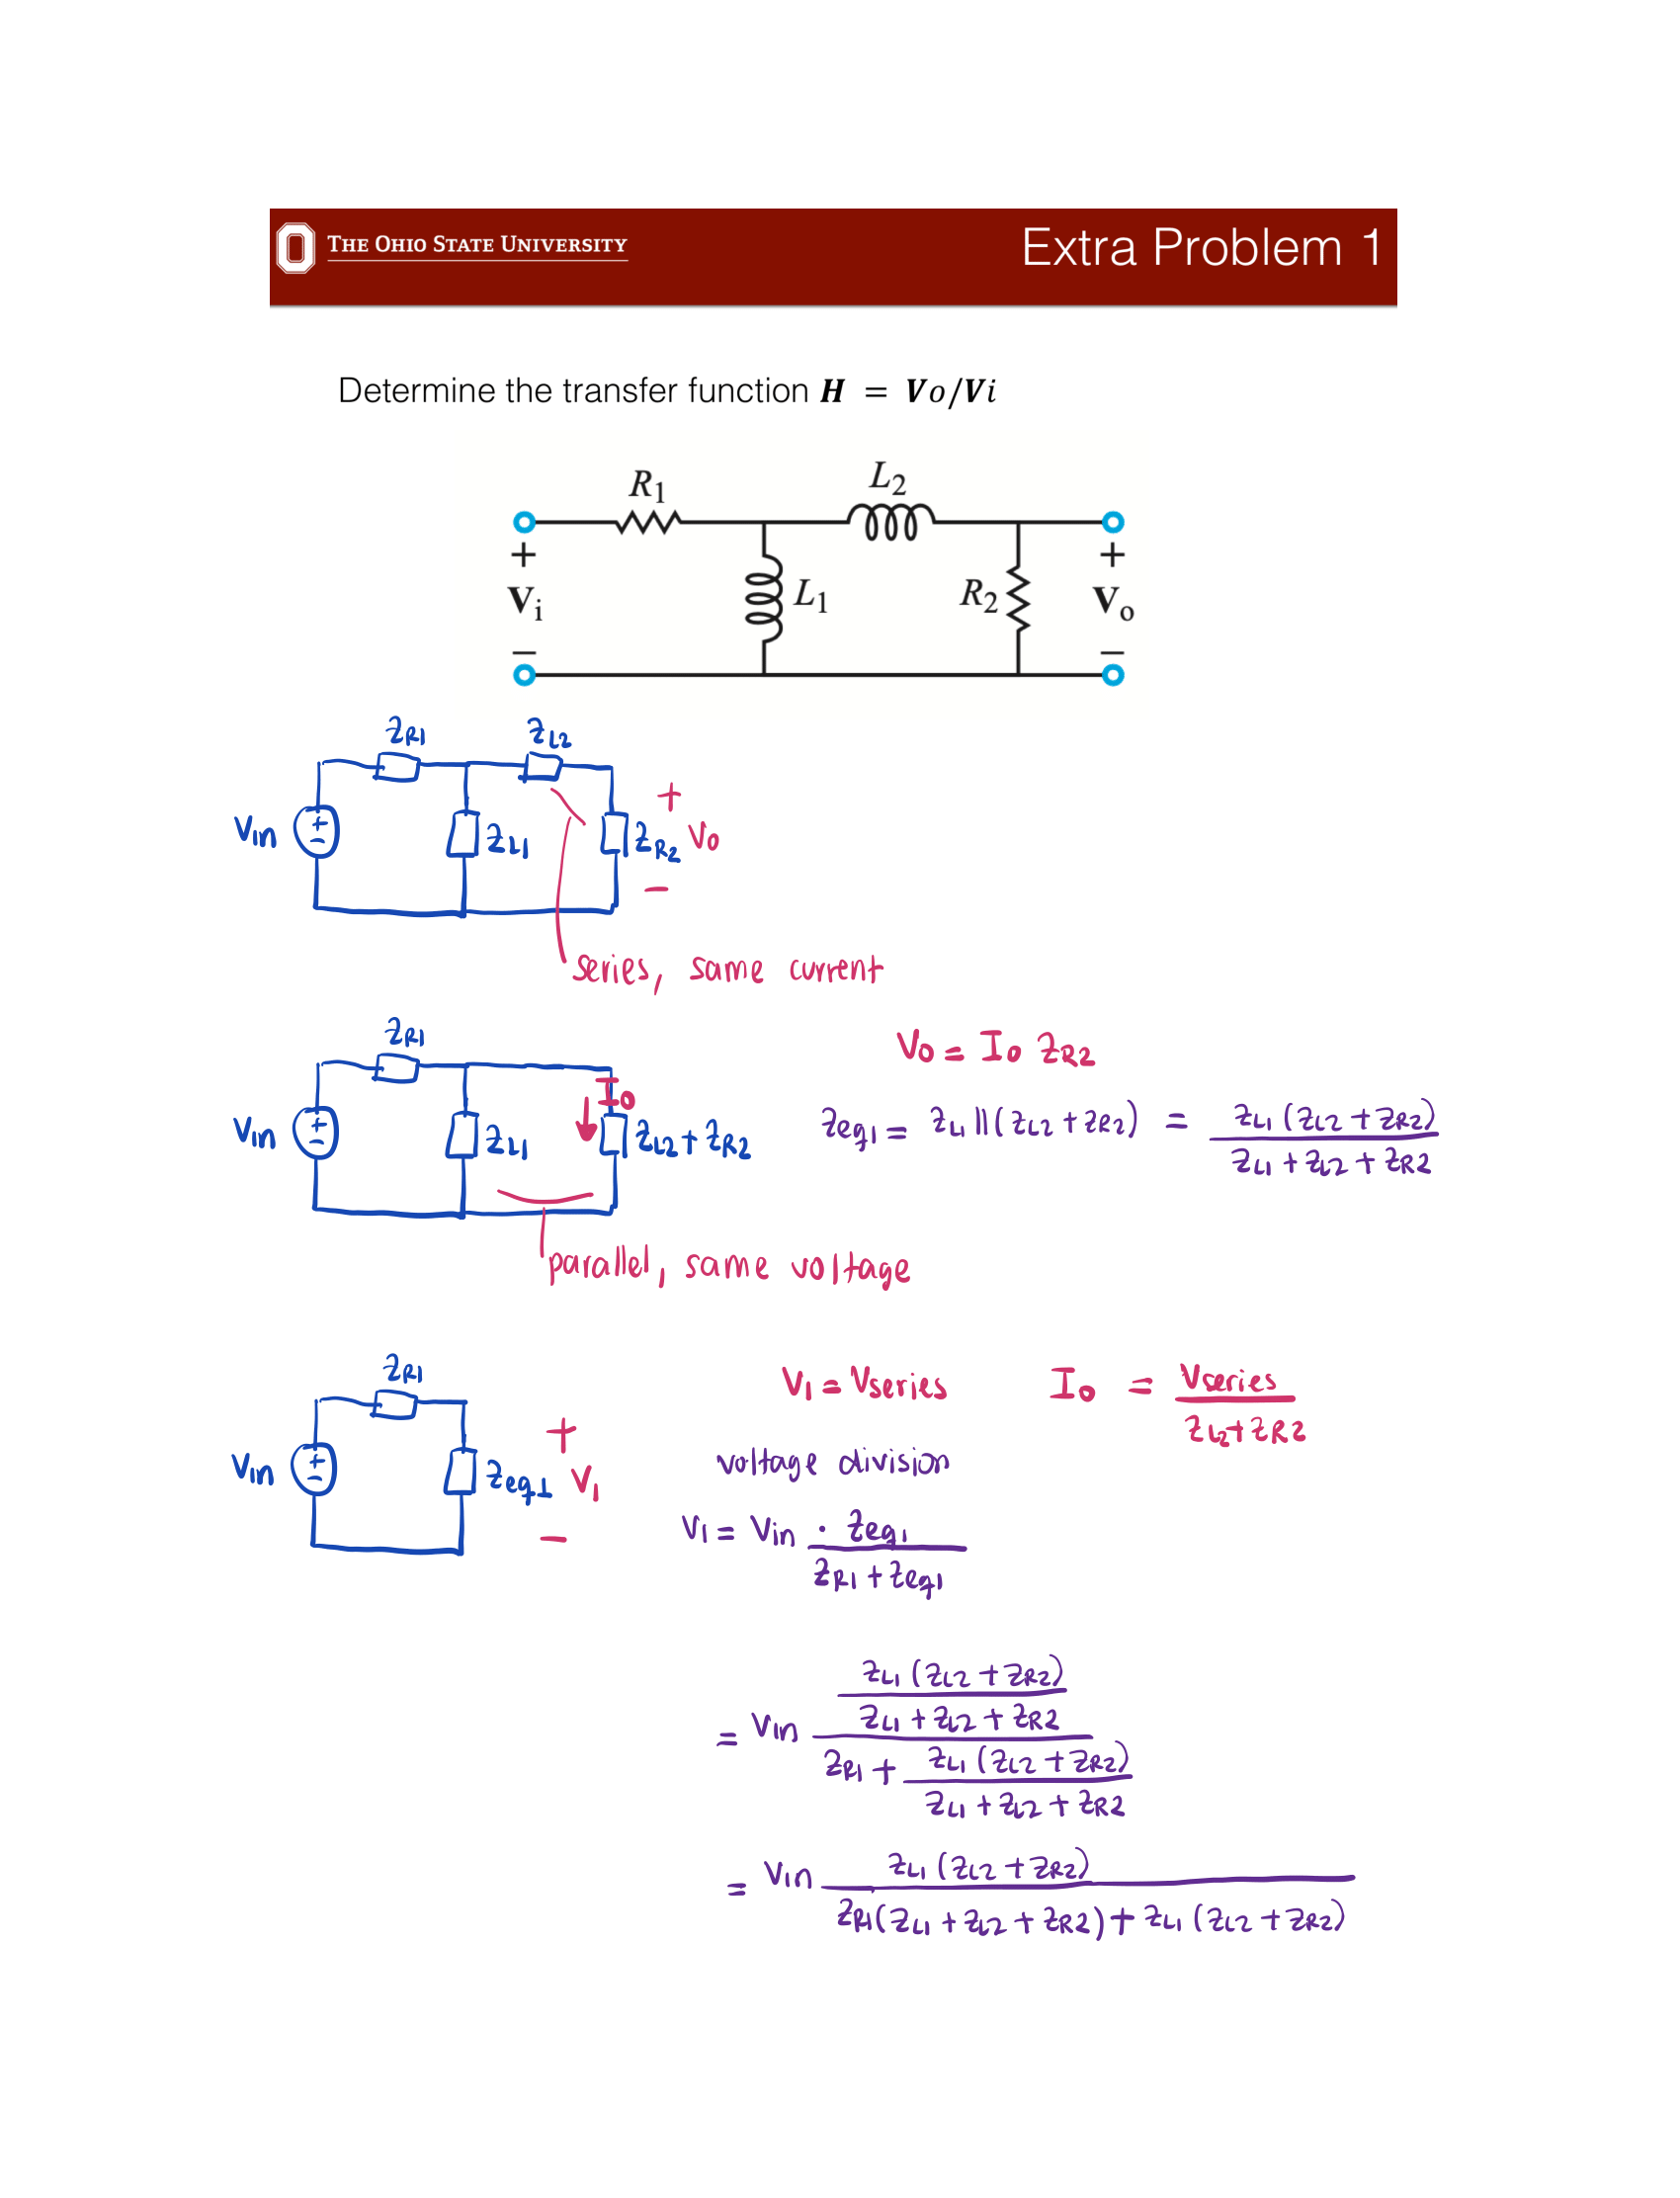 THE OHIO STATE UNIVERSITY
Extra Problem 1
Determine the transfer function H = Vo/Vi
R1
L2
+
Vi
−
L1
R2
+
Vo
−
ZR1
ZL2
Vin
+
−
ZL1
ZR2
+
Vo
−
series, same current
ZR1
Vin
+
−
ZL1
Io
ZL2 + ZR2
parallel, same voltage
Vo = Io ZR2
Zeq1 = ZL1 || (ZL2 + ZR2) = ZL1 (ZL2 + ZR2) / ZL1 + ZL2 + ZR2
ZR1
Vin
+
−
Zeq1
+
V1
−
V1 = Vseries
Io = Vseries / ZL2 + ZR2
voltage division
V1 = Vin · Zeq1 / ZR1 + Zeq1
= Vin ZL1 (ZL2 + ZR2) / ZL1 + ZL2 + ZR2 / ZR1 + ZL1 (ZL2 + ZR2) / ZL1 + ZL2 + ZR2
= Vin ZL1 (ZL2 + ZR2) / ZR1 (ZL1 + ZL2 + ZR2) + ZL1 (ZL2 + ZR2)